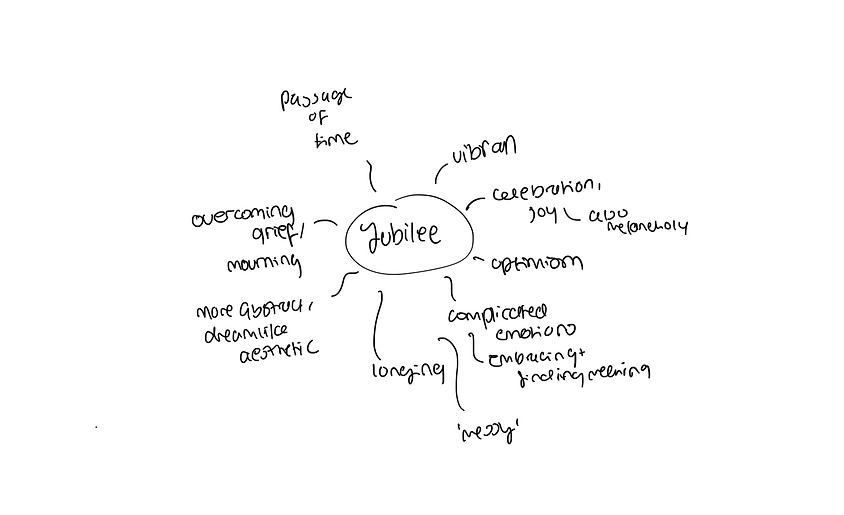 passage
of
time
vibran
celebration,
joy
also
melancholy
overcoming
grief/
mourning
Jubilee
optimism
more abstract,
dreamlike
aesthetic
complicated
emotions
embracing +
finding meaning
longing
'messy'